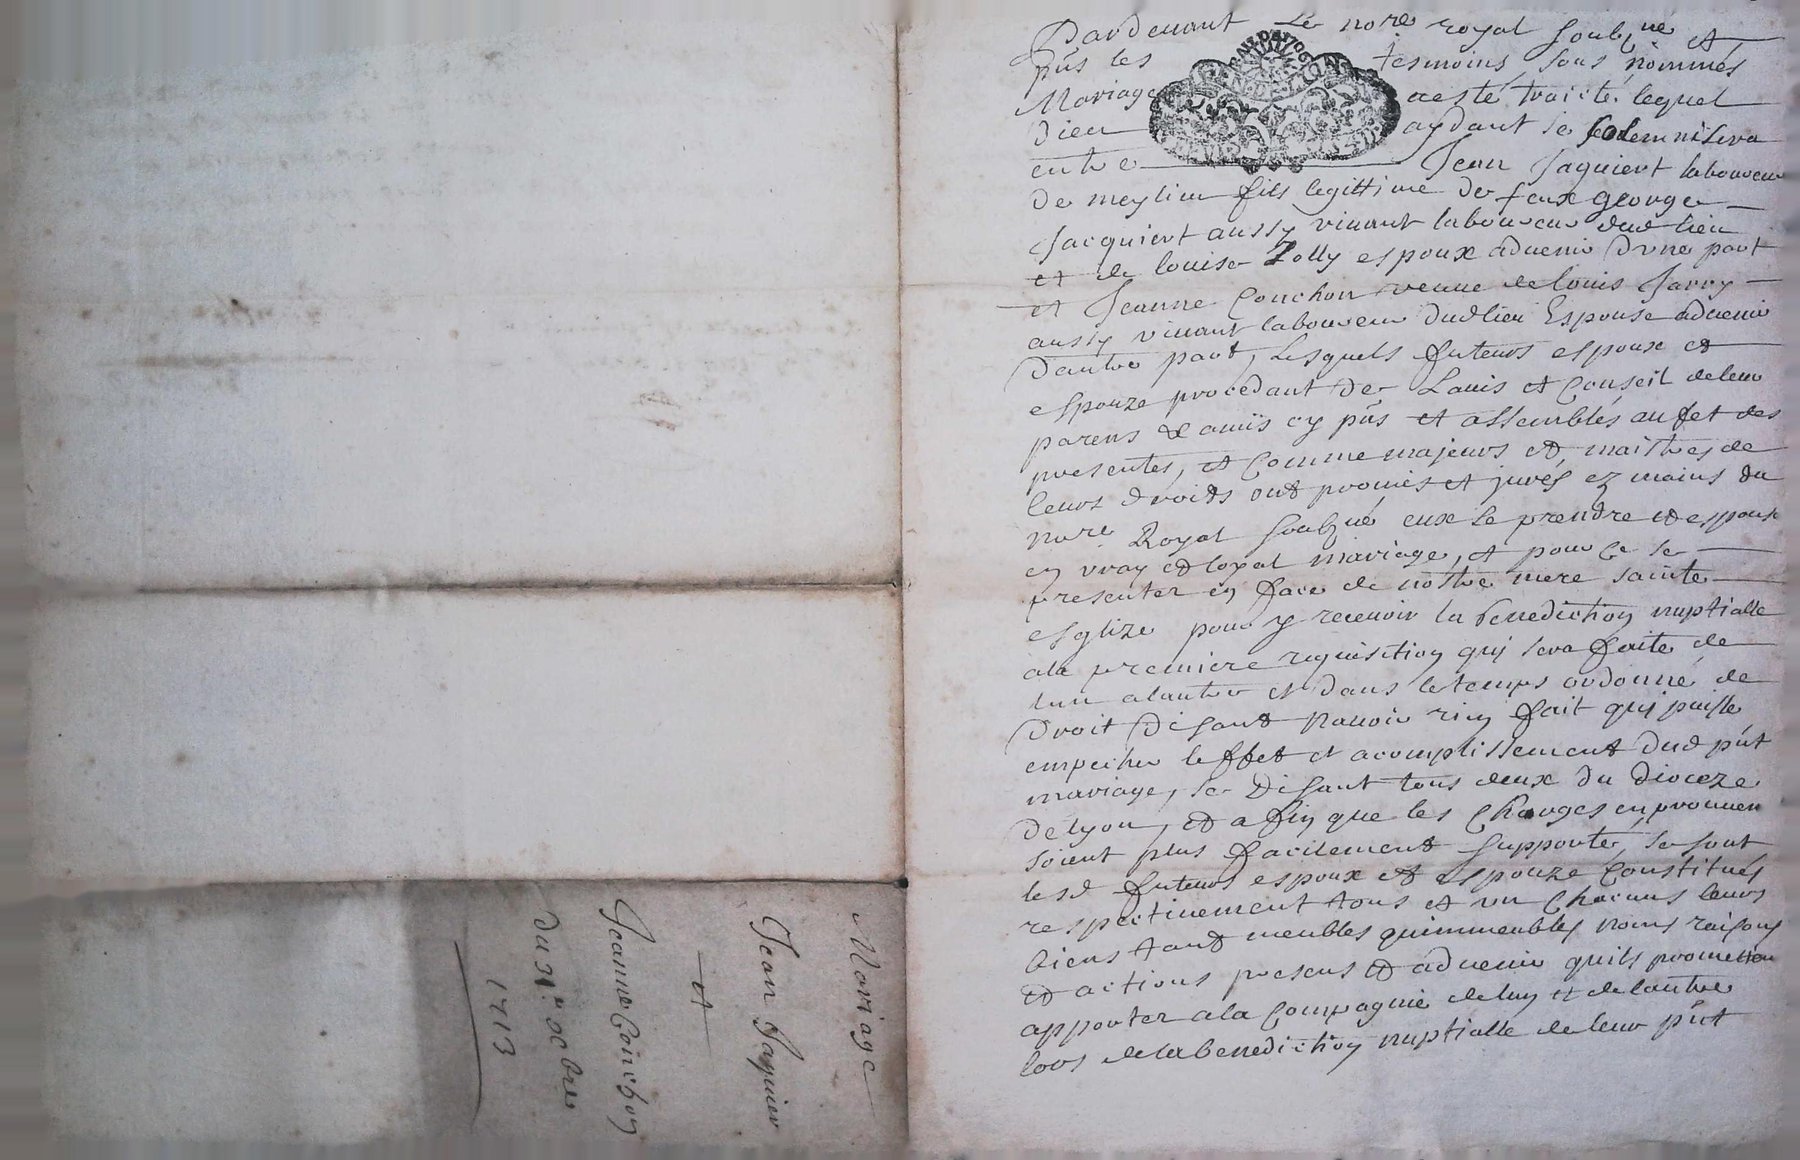 Pardevant Le no.re royal soubz.né et
pn̄s les tesmoins sous nommés
Mariage a esté traicté lequel
Dieu aydant se solemnisera
entre Jean Jaquiert laboureur
de meylieu fils legittime de feux george
Jacquiert aussy vivant laboureur dud lieu
et de louise Jolly espoux advenir d'une part
et Jeanne Couchon veuve de louis Jarry
aussy vivant laboureur dud lieu Espouse advenir
d'autre part, Lesquels futeurs espoux et
espouze procedant de Lavis et Conseil de leur
parens & amis cy pn̄s et assemblés au fet des
presentes, et Comme majeurs et maistres de
leurs droits ont promis et jurés ez mains du
no.re Royal soubz.né eux se prendre et espouser
en vray et loyal mariage, et pour Ce se
presenter en face de nostre mere sainte
esglize pour y recevoir la benediction nuptialle
a la premiere requisition quj sera faite de
lun a lautre et dans le temps ordonné de
Droit Disant navoir rien fait quj puisse
empecher leffet et acomplissement dud pn̄t
mariage, se Disant tous deux du dioceze
de lyon, et afin que les Charges en provenen
soient plus facilement supporté, se sont
lesd futeurs espoux et espouze Constitués
respectivement tous et un Chacuns leurs
biens tant meubles quimmeubles noms raisons
et actions presens et advenir quils prometten
apporter a la Compagnie de luy et de lautre
lors de la benediction nuptialle de leur pn̄t
Mariage
Jean Jaquier
et
Jeanne Couchon
du 31.e 8bre
1713